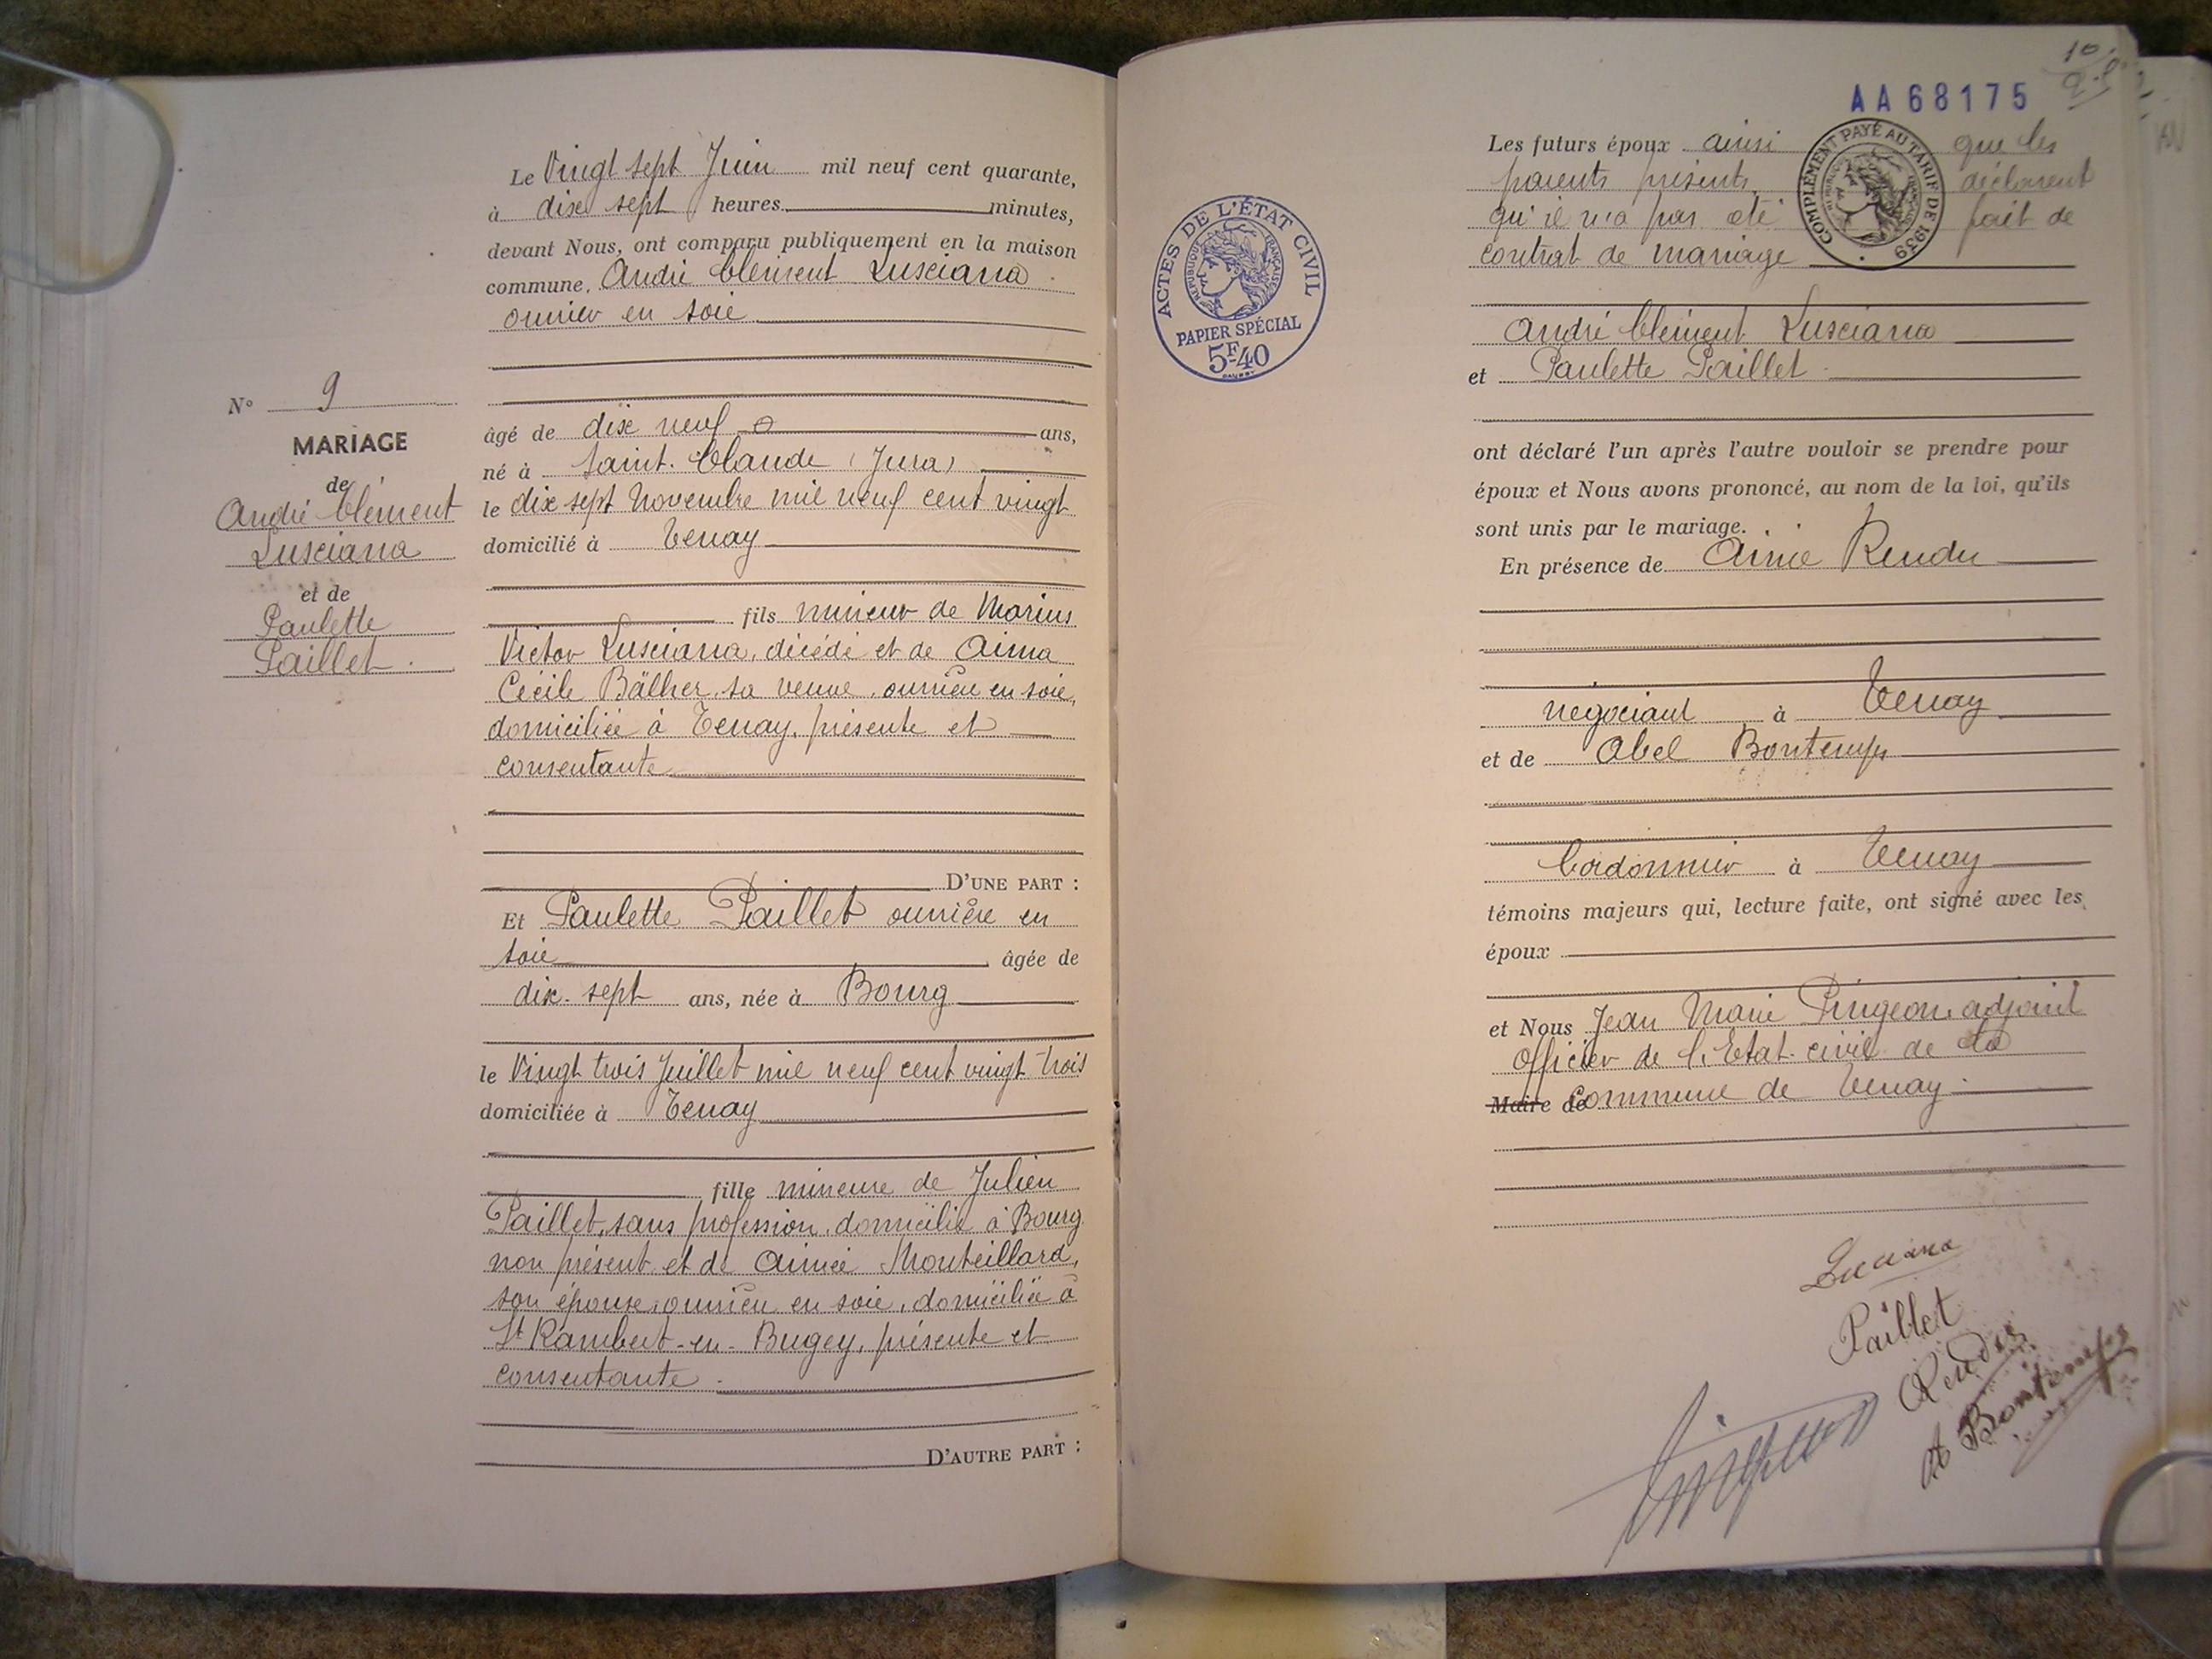 Le Vingt sept Juin mil neuf cent quarante,
à dix sept heures minutes,
devant Nous, ont comparu publiquement en la maison
commune, André Clément Lusciana
ouvrier en soie
N° 9
MARIAGE
de
André Clément
Lusciana
et de
Paulette
Paillet.
âgé de dix neuf ans,
né à Saint-Claude (Jura)
le dix sept Novembre mil neuf cent vingt
domicilié à Tenay
fils mineur de Marius
Victor Lusciana, décédé et de Aima
Cécile Bälher, sa veuve, ouvrière en soie,
domiciliée à Tenay, présente et
consentante
D'UNE PART :
Et Paulette Paillet ouvrière en
soie âgée de
dix-sept ans, née à Bourg
le Vingt trois Juillet mil neuf cent vingt-trois
domiciliée à Tenay
fille mineure de Julien
Paillet, sans profession, domicilié à Bourg
non présent et de Aimée Monteillard,
son épouse, ouvrière en soie, domiciliée à
St Rambert-en-Bugey, présente et
consentante.
D'AUTRE PART :
10
AA68175
Les futurs époux ainsi que les
parents présents, déclarent
qu'il n'a pas été fait de
contrat de mariage
COMPLÉMENT PAYÉ AU TARIF DE 1939
ACTES DE L'ÉTAT CIVIL
RÉPUBLIQUE FRANÇAISE
PAPIER SPÉCIAL
5F40
André Clément Lusciana
et Paulette Paillet.
ont déclaré l'un après l'autre vouloir se prendre pour
époux et Nous avons prononcé, au nom de la loi, qu'ils
sont unis par le mariage.
En présence de Aimé Rendu
négociant à Tenay
et de Abel Bontemps
Cordonnier à Tenay
témoins majeurs qui, lecture faite, ont signé avec les
époux
et Nous Jean Marie Pingeon, adjoint
Officier de l'Etat-civil de la
Maire de Commune de Tenay.
Lusciana
Paillet
Rendu
A Bontemps